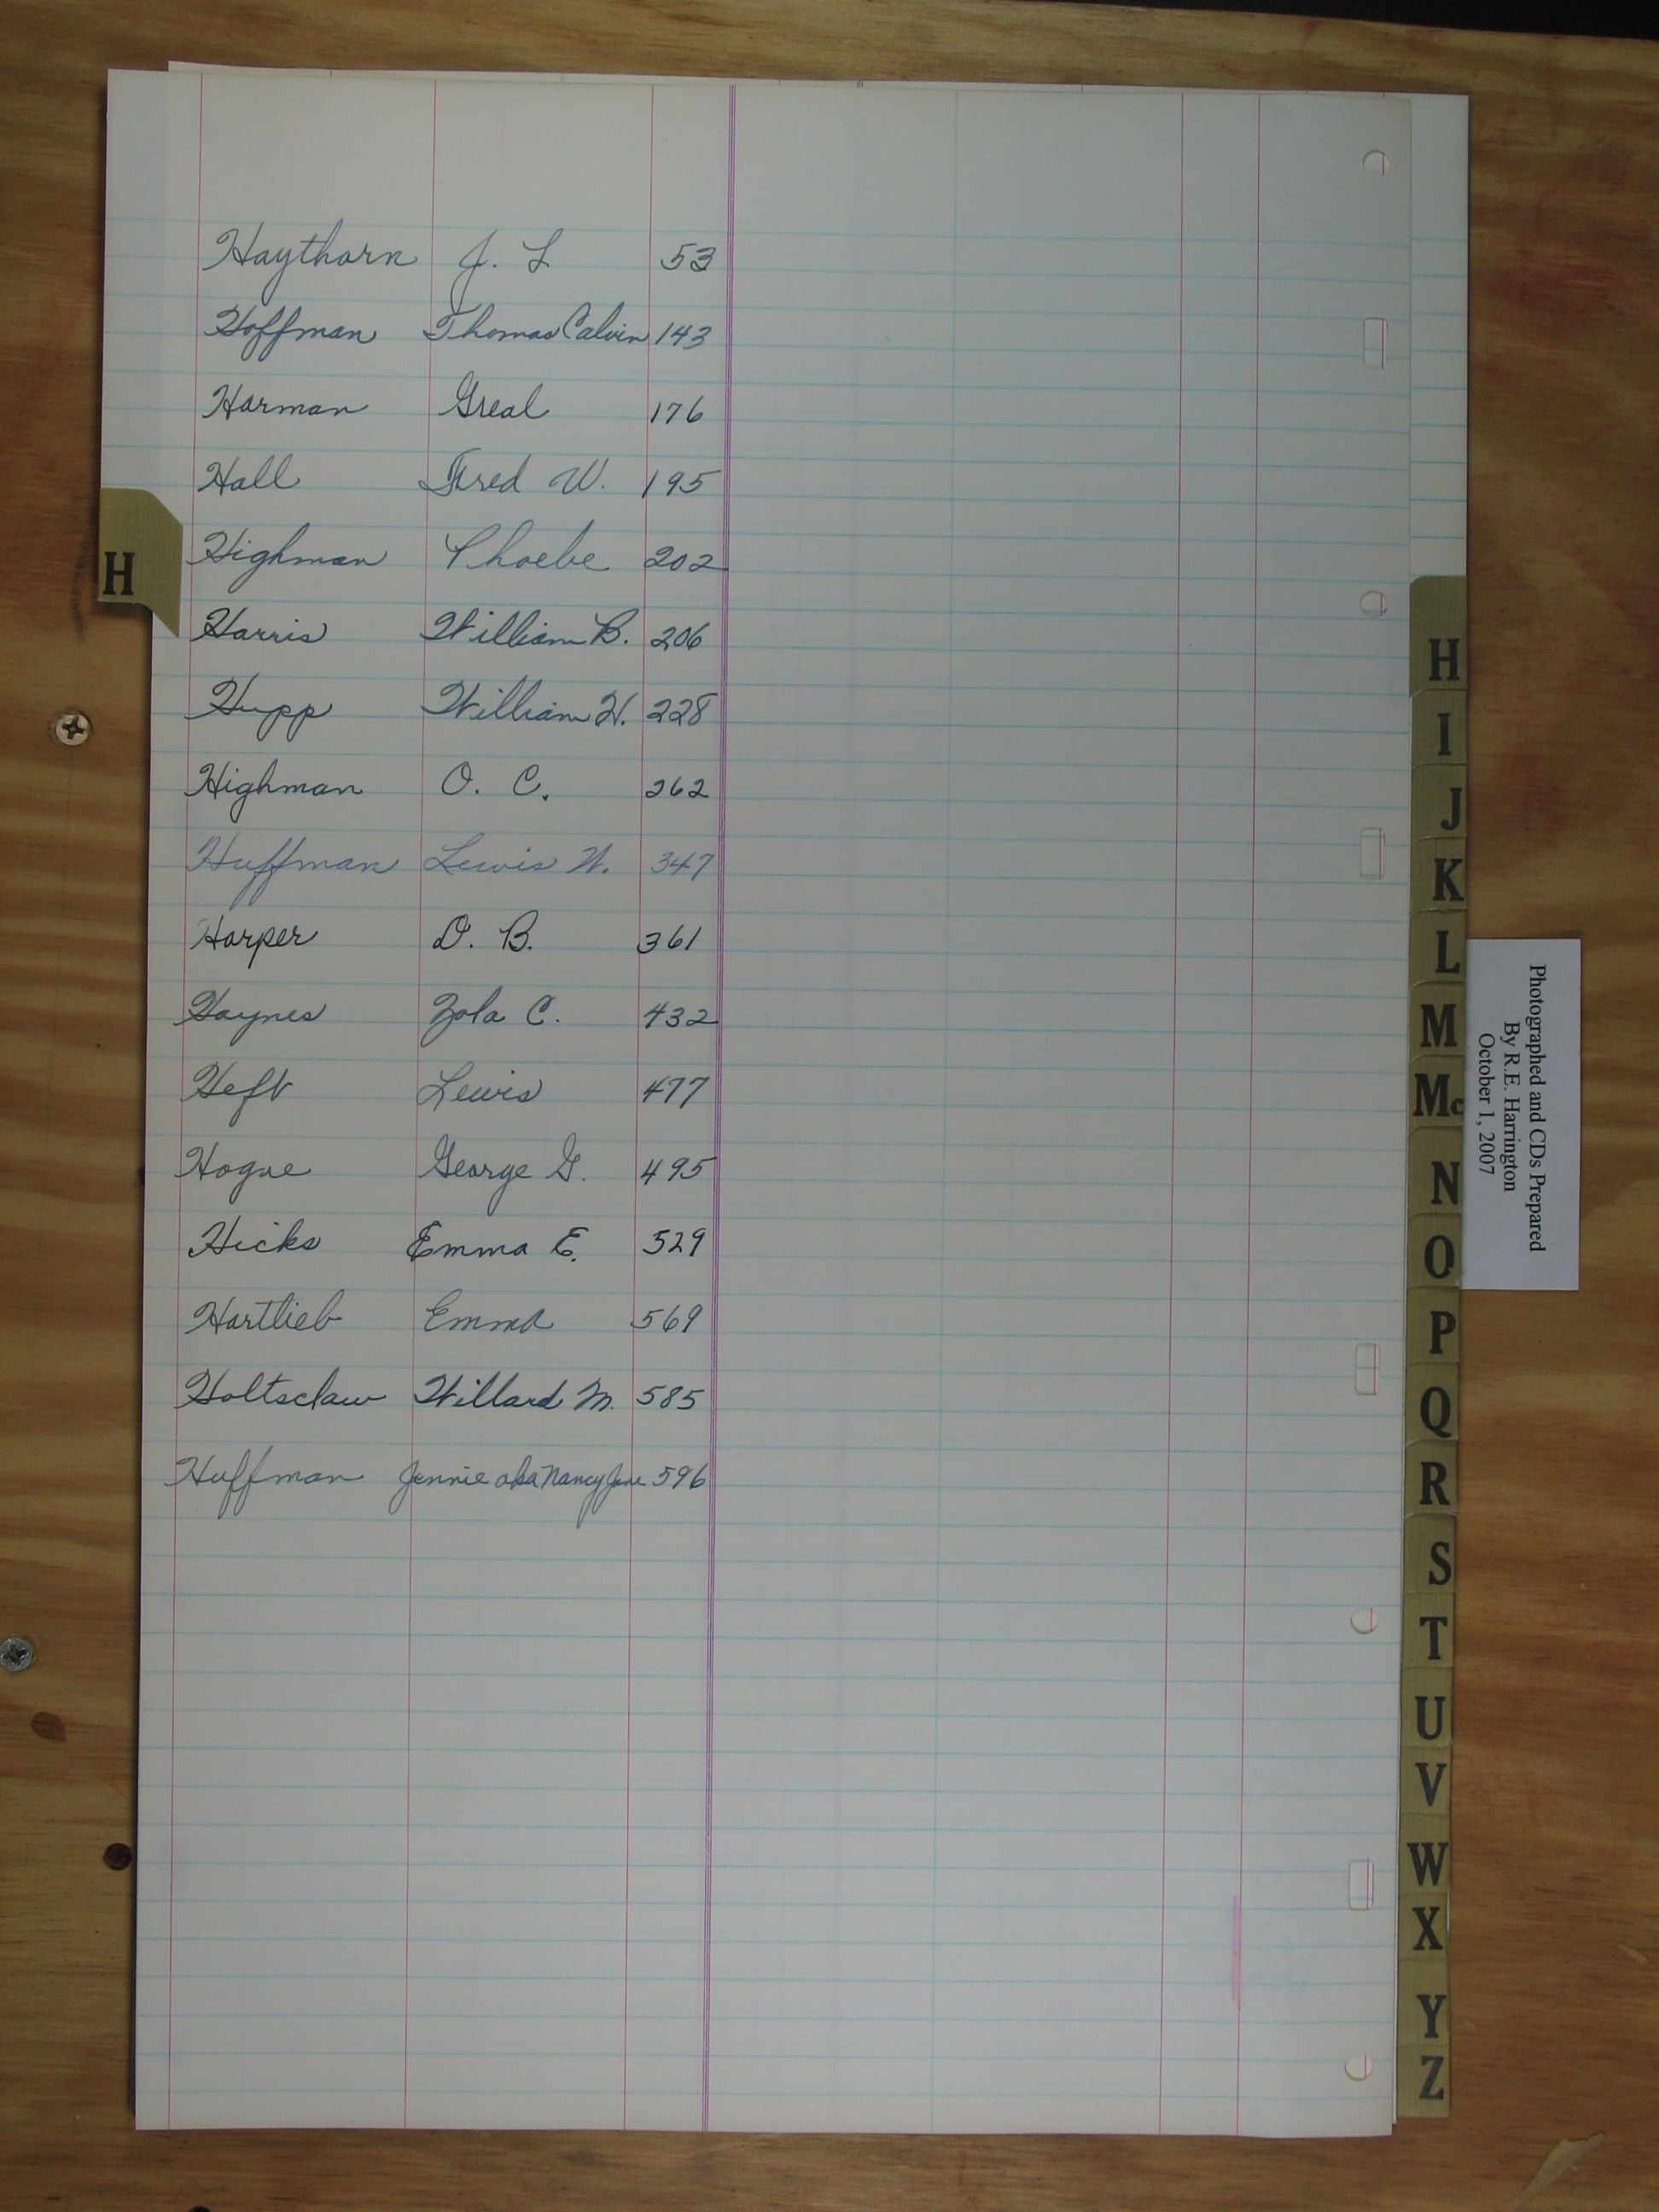 Haythorn J. L 53
Hoffman Thomas Calvin 143
Harman Greal 176
Hall Fred W. 195
Highman Phoebe 202
Harris William B. 206
Hupp William H. 228
Highman O. C. 262
Huffman Lewis W. 347
Harper D. B. 361
Haynes Zola C. 432
Heft Lewis 477
Hogue George G. 495
Hicks Emma E. 529
Hartlieb Emma 569
Holtsclaw Willard M. 585
Huffman Jennie aka Nancy Jane 596
H
H
I
J
K
L
M
Mc
N
O
P
Q
R
S
T
U
V
W
X
Y
Z
Photographed and CDs Prepared
By R.E. Harrington
October 1, 2007